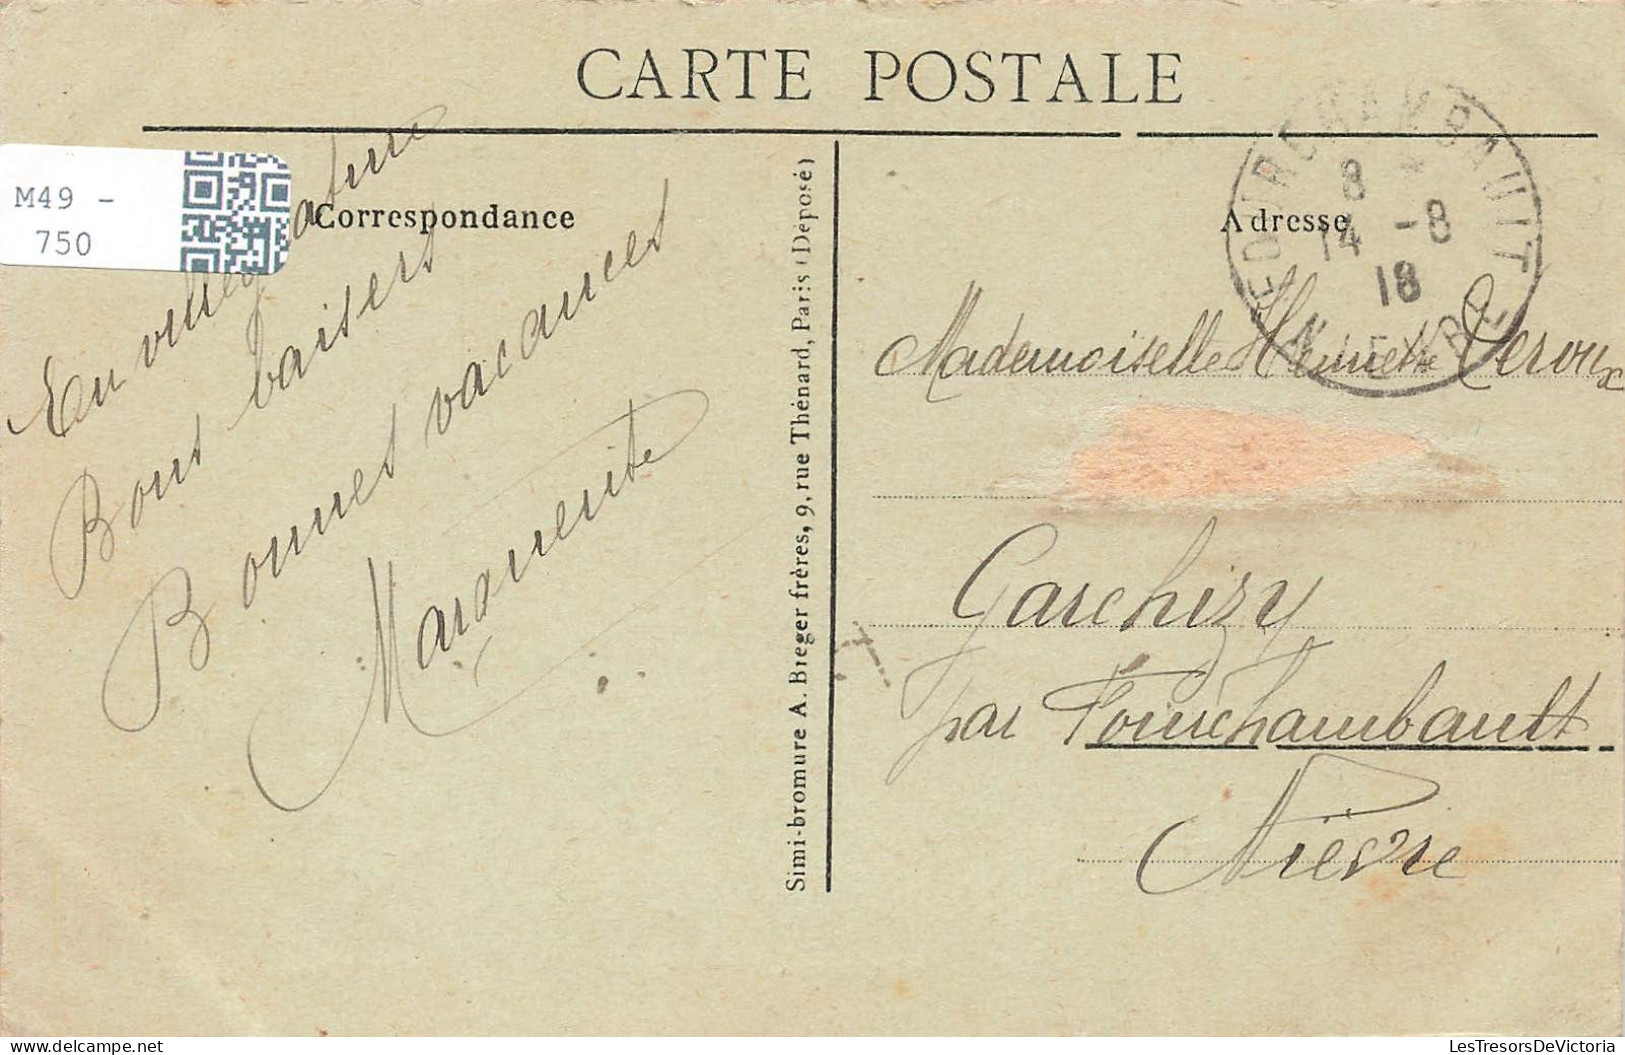 CARTE POSTALE
M49 -
750
Correspondance
En villégiature
Bons baisers
Bonnes vacances
Marguerite
Simi-bromure A. Breger frères, 9, rue Thénard, Paris (Déposé)
Adresse
FOURCHAMBAULT
8 *
14 -8
18
NIEVRE
Mademoiselle Henriette Leroux
Garchizy
par Fourchambault
Nièvre
LesTresorsDeVictoria